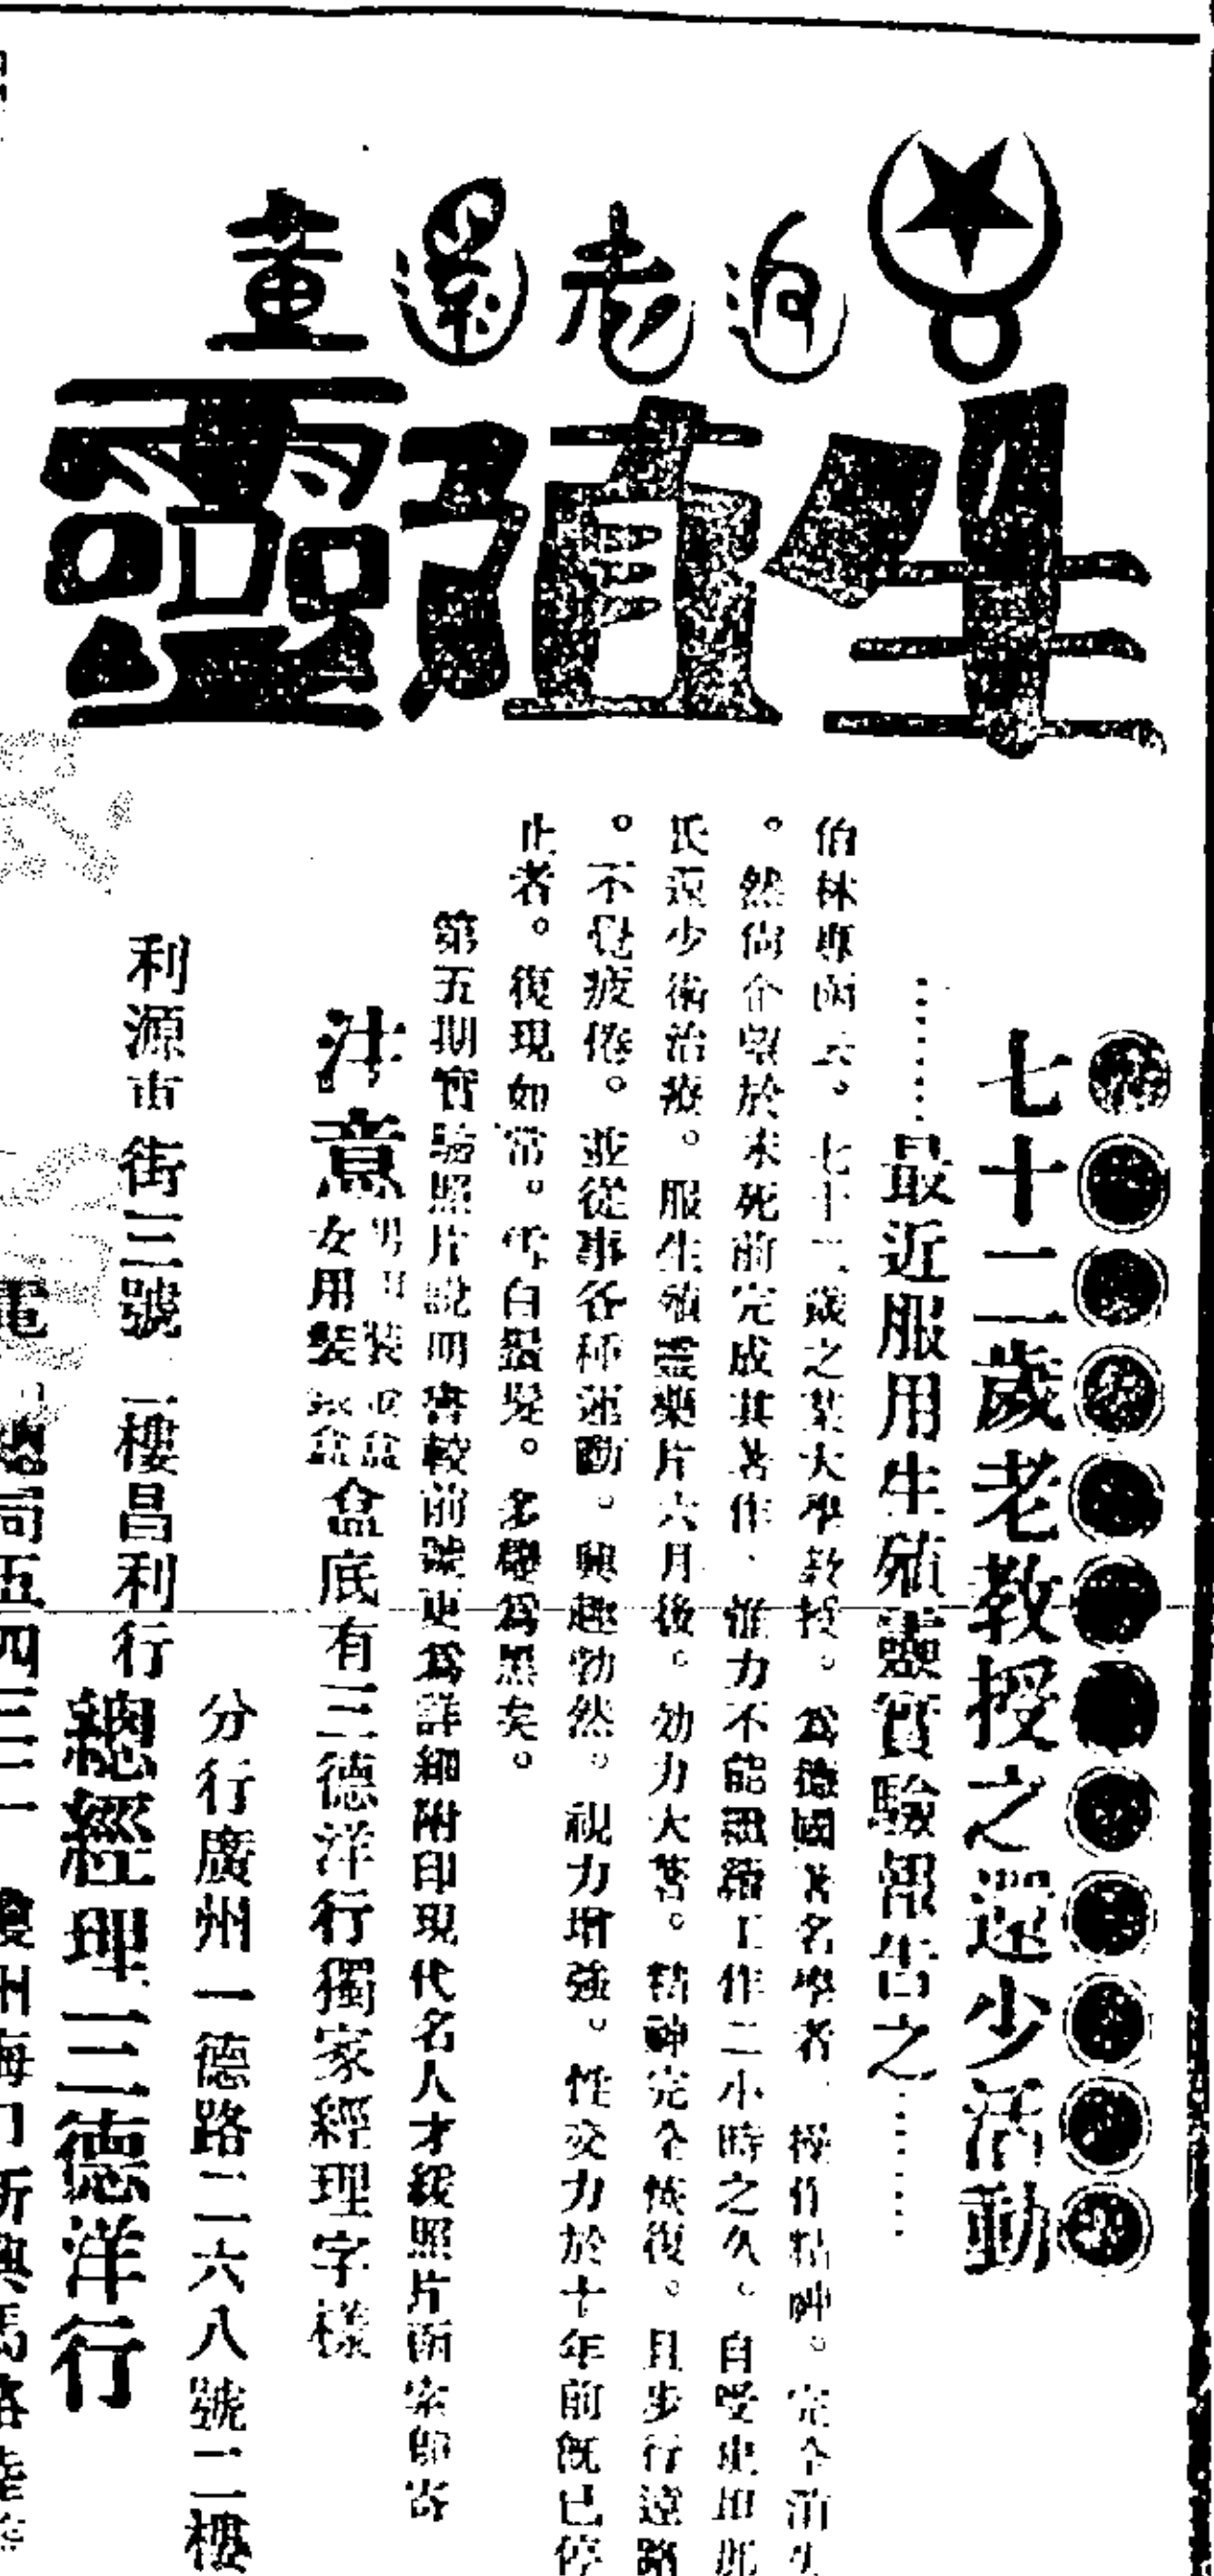 返老還童
生殖靈
七十二歲老教授之還少活動
最近服用生殖靈實驗報告之
伯林專函云。七十二歲之某大學教授。為德國著名學者、操作精神。完全消失
。然尚企望於未死前完成其著作、惟力不能繼續工作二小時之久。自受史坦那
氏還少術治療。服生殖靈藥片六月後。効力大著。精神完全恢復。且步行遠路
。不覺疲倦。並從事各種運動。興趣勃然。視力增強。性交力於十年前既已停
止者。復現如常。雪白鬚髮。多變為黑矣。
第五期實驗照片說明書較前號更為詳細附印現代名人才緩照片函索即寄
注意
男用裝
女用裝
盒底有三德洋行獨家經理字樣
分行廣州一德路二六八號二樓
利源市街三號 二樓昌利行
總經理三德洋行